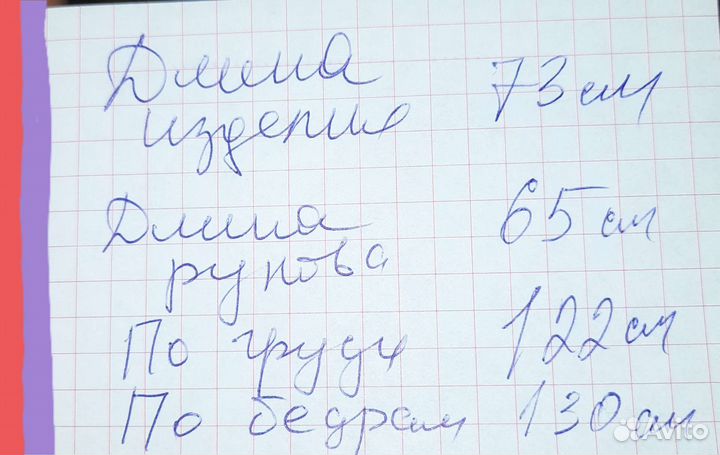 Длина 73 см
изделия
Длина 65 см
рукова
По груди 122 см
По бедрам 130 см
Avito